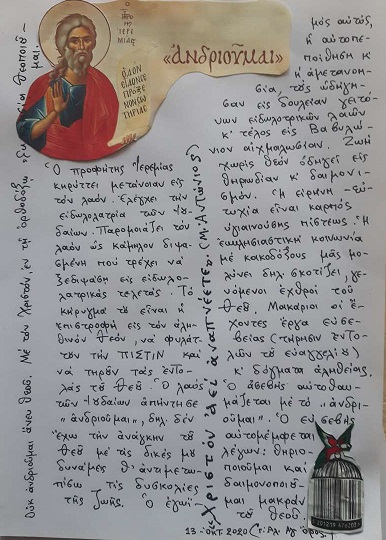 Ο ΠΡΟΦ. ΙΕΡΕΜΙΑΣ
«ἀνδριοῦμαι»
Ὁ προφήτης Ἱερεμίας
κηρύττει μετάνοιαν εἰς
τόν λαόν. Ἐλέγχει τήν
εἰδωλολατρία τῶν Ἰου-
δαίων. Παρομοιάζει τόν
λαόν ὡς κάμηλον διψα-
σμένη πού τρέχει νά
ξεδιψάσῃ εἰς εἰδωλο-
λατρικάς τελετάς. Τό
κήρυγμά του εἶναι ἡ
ἐπιστροφή εἰς τόν ἀλη-
θινόν Θεόν, νά φυλάτ-
τουν τήν ΠΙΣΤΙΝ καί
νά τηροῦν τάς ἐντο-
λάς τοῦ Θεοῦ. Ὁ λαός
τῶν Ἰουδαίων ἀπήντησε
«ἀνδριοῦμαι», δηλ. δέν
ἔχω τήν ἀνάγκην τοῦ
Θεοῦ μέ τίς δικές μου
δυνάμεις θ' ἀντιμετω-
πίσω τίς δυσκολίες
τῆς ζωῆς. Ὁ ἐγωϊ-
μός αὐτός,
ἡ αὐτοπε-
ποίθηση κ'
ἡ ἀμετανοη-
σία, τούς ὁδήγη-
σαν εἰς δουλείαν γειτό-
νων εἰδωλολατρικῶν λαῶν
κ' τέλος εἰς Βαβυλώ-
νιον αἰχμαλωσίαν. Ζωή
χωρίς Θεόν ὁδηγεῖ εἰς
θηριωδίαν κ' δαιμονι-
σμόν. Ἡ εἰρήνη - εὐ-
τυχία εἶναι καρπός
ὑγιαινούσης πίστεως. Ἡ
ἐκκλησιαστική κοινωνία
μέ κακοδόξους μᾶς μο-
λύνει δηλ. σκοτίζει, γε-
νόμενοι ἐχθροί τοῦ
Θεοῦ. Μακάριοι οἱ ἔ-
χοντες ἔργα εὐσε-
βείας (τήρησιν ἐντο-
λῶν τοῦ εὐαγγελίου)
κ' δόγματα ἀληθείας.
Ὁ ἀσεβής αὐτοθαυ-
μάζεται μέ τό «ἀνδρι-
οῦμαι». Ὁ εὐσεβής
αὐτομέμφεται
λέγων: θηριο-
ποιοῦμαι καί
δαιμονοποιοῦ-
μαι μακράν
τοῦ Θεοῦ.
13 - ὀκτ. 2020
«Χριστόν ἀεί ἀναπνέετε» (Μ. Ἀντώνιος)
Οὐκ ἀνδριοῦμαι ἄνευ Θεοῦ. Μέ τόν Χριστόν, ἐν τῇ ὀρθοδοξῳ